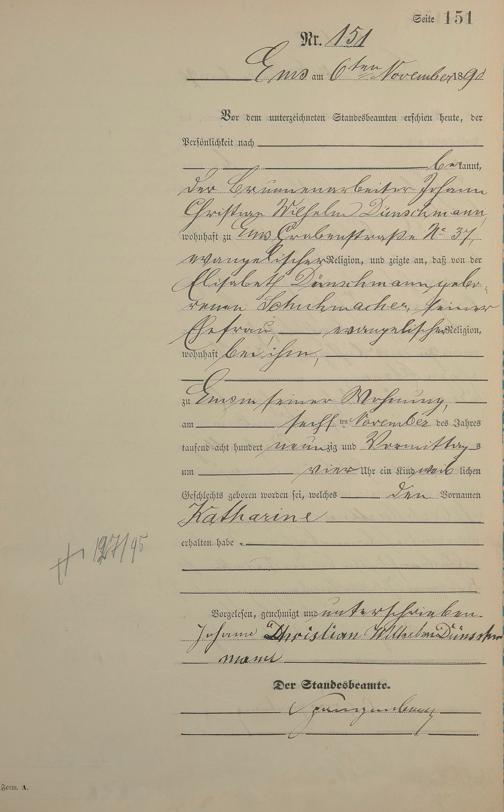 Seite 151
Nr. 151
Ems am 6ten November 1890
Vor dem unterzeichneten Standesbeamten erschien heute, der
Persönlichkeit nach
bekannt,
der Brunnenarbeiter Johann
Christian Wilhelm Dünschmann,
wohnhaft zu Ems, Grabenstraße No 37,
evangelischer Religion, und zeigte an, daß von der
Elisabeth Dünschmann gebo-
renen Schuhmacher, seiner
Ehefrau, evangelischer Religion,
wohnhaft bei ihm,
zu Ems in seiner Wohnung,
am sechsten November des Jahres
tausend acht hundert neunzig und Vormittags
um vier Uhr ein Kind weiblichen
Geschlechts geboren worden sei, welches den Vornamen
Katharine
erhalten habe.
+ 127/95
Vorgelesen, genehmigt und unterschrieben.
Johann Christian Wilhelm Dünsch
mann
Der Standesbeamte.
Form. A.